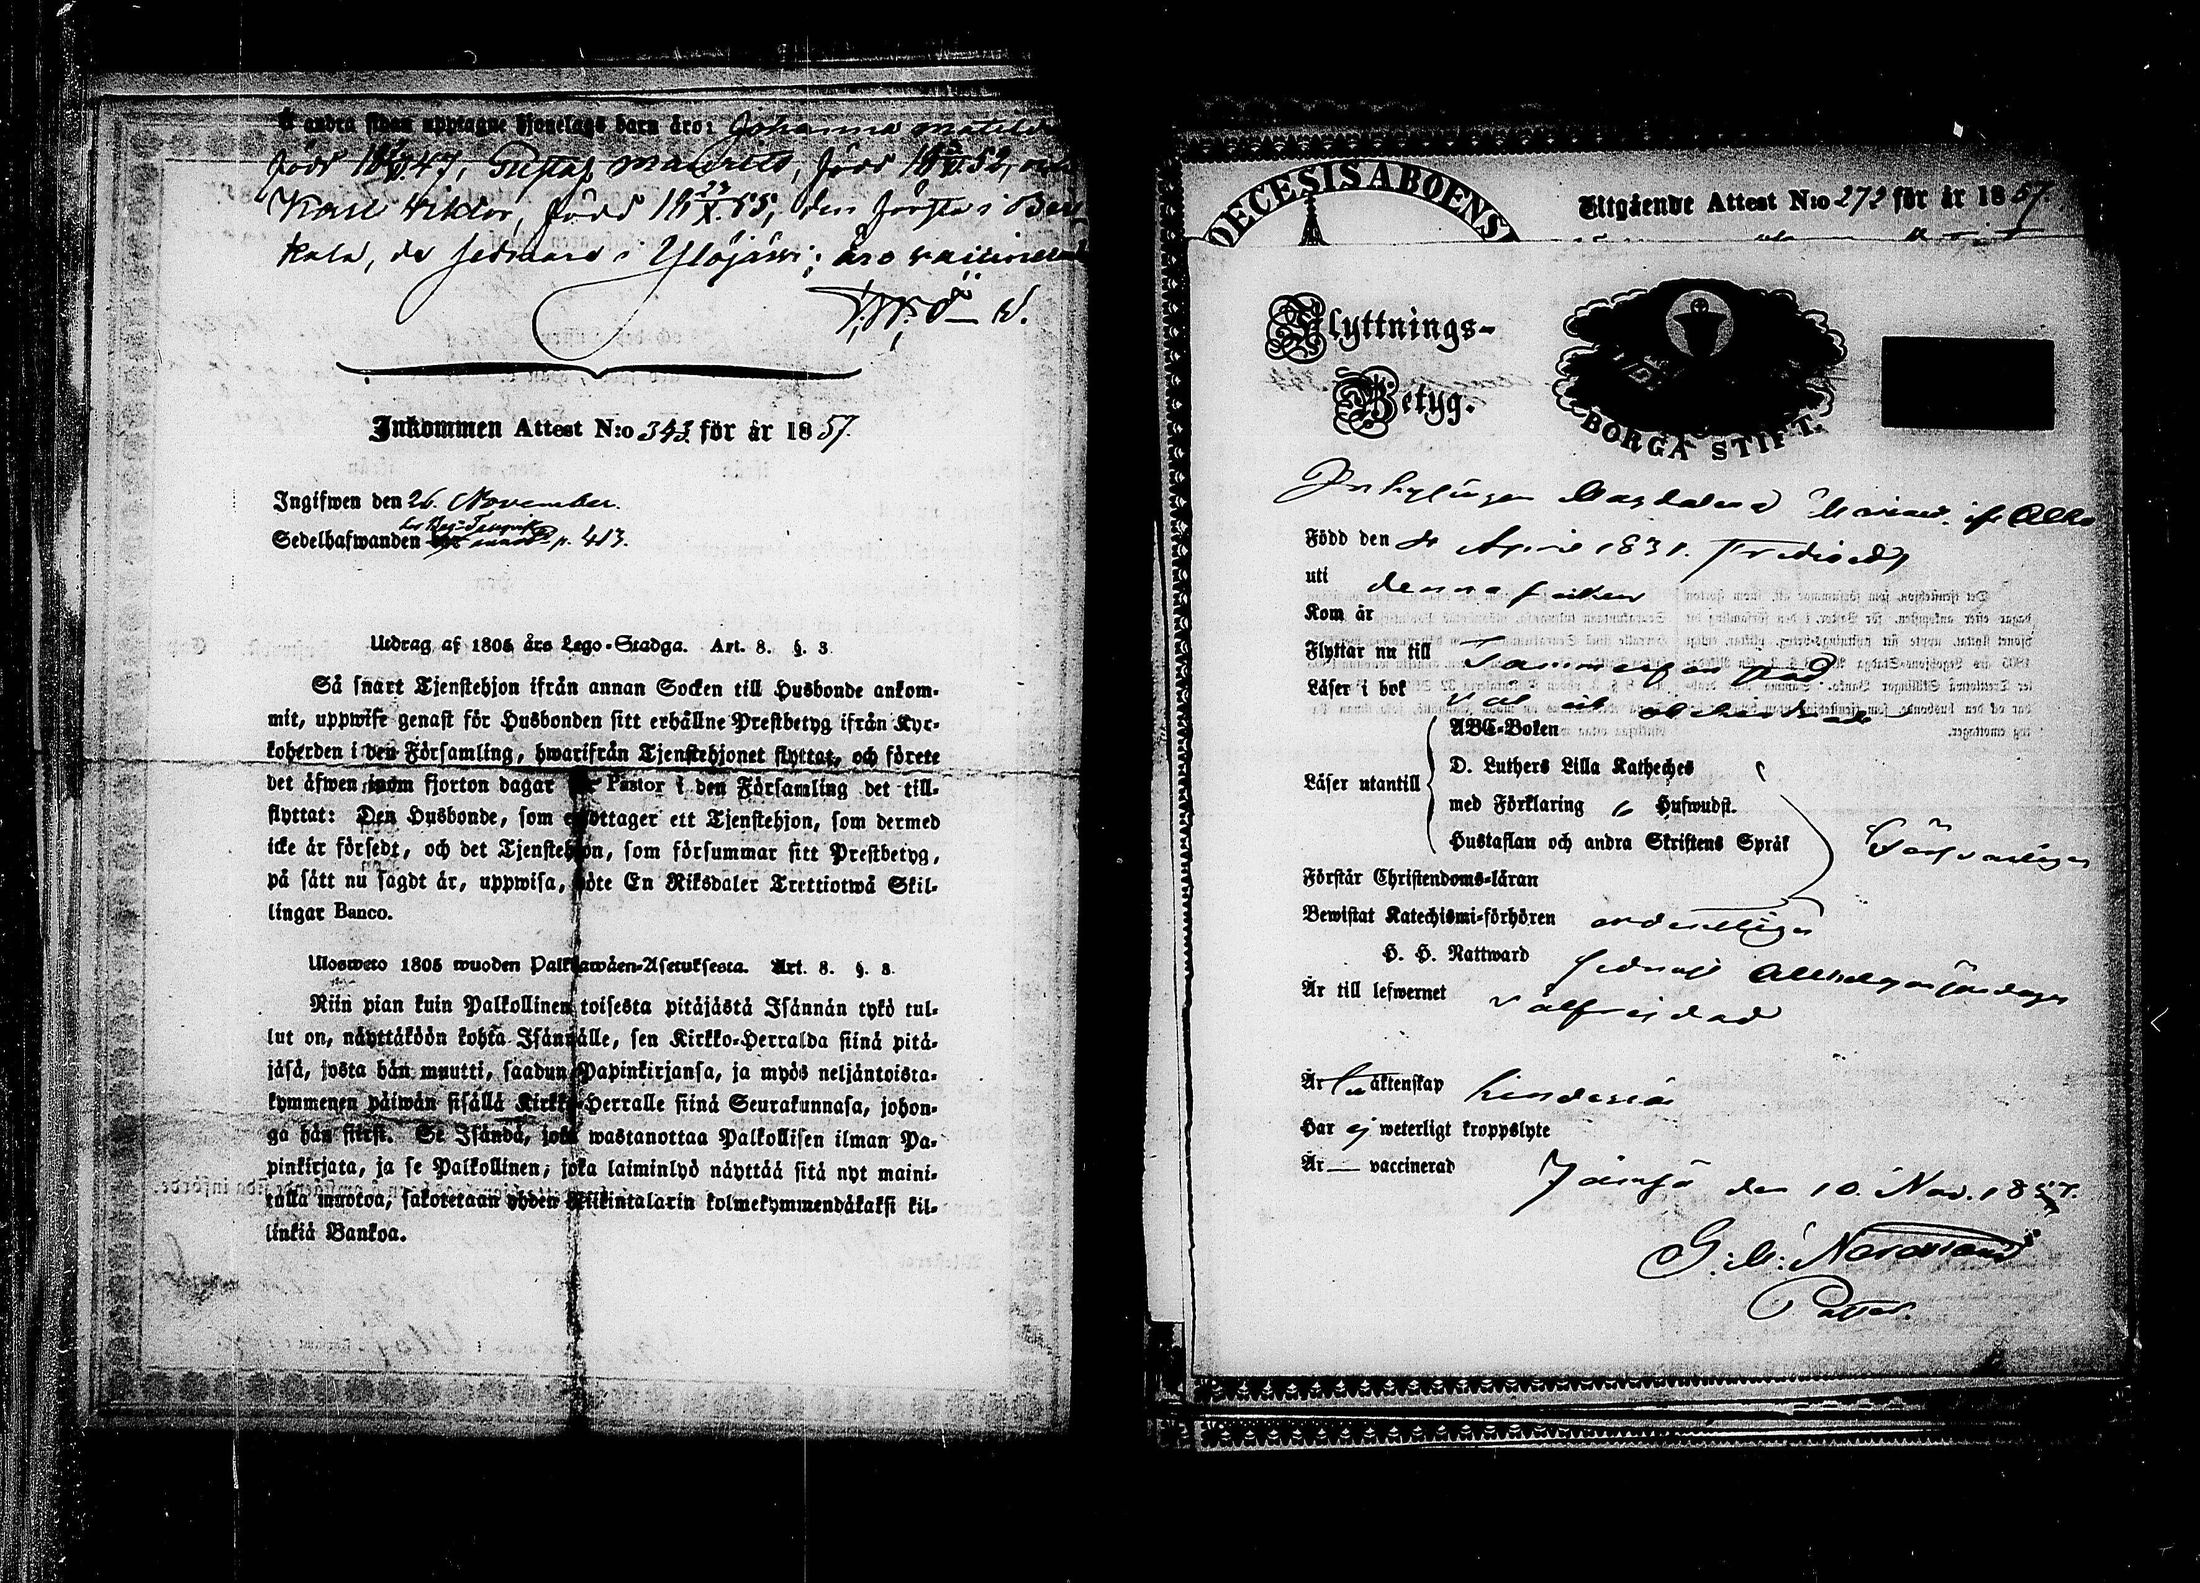 å andra sidan upptagne hjonelags barn äro: Johanna Matilda
född 18 47, Gustaf Mauritz, född 18 52, och
Karl Viktor, född 18 23/X 55, den första i
kala, de sednare i Ylöjärvi; äro vaccinerade
Inkommen Attest N:o 343 för år 1857.
Ingifwen den 26. November.
Sedelhafwanden p. 413.
Utdrag af 1805 års Lego-Stadga. Art. 8. §. 3.
Så snart Tjenstehjon ifrån annan Socken till Husbonde ankom-
mit, uppwise genast för Husbonden sitt erhållne Prestbetyg ifrån Kyr-
koherden i den Församling, hwarifrån Tjenstehjonet flyttat, och förete
det äfwen inom fjorton dagar för Pastor i den Församling det till-
flyttat: Den Husbonde, som emottager ett Tjenstehjon, som dermed
icke är försedt, och det Tjenstehjon, som försummar sitt Prestbetyg,
på sätt nu sagdt är, uppwisa, böte En Riksdaler Trettiotwå Skil-
lingar Banco.
Ulosweto 1805 wuoden Palkkawäen-Asetuksesta. Art. 8. §. 3.
Niin pian kuin Palkollinen toisesta pitäjästä Isännän tykö tul-
lut on, näyttäköön kohta Isännälle, sen Kirkko-Herralda siinä pitä-
jäsä, josta hän muutti, saadun Papinkirjansa, ja myös neljäntoista-
kymmenen päiwän sisällä Kirkko-Herralle siinä Seurakunnasa, johon-
ga hän siirsi. Se Isändä, joka wastanottaa Palkollisen ilman Pa-
pinkirjata, ja se Palkollinen, joka laiminlyö näyttää sitä nyt maini-
tulla muotoa, sakotetaan yhden Rikintalarin kolmekymmendäkaksi kil-
linkiä Bankoa.
DECESIS ABOENS
Utgående Attest N:o 272 för år 1857.
Flyttnings-
Betyg.
BORGÅ STIFT.
Inhysingen Magdalena
Född den April 1831.
uti denna socken
Kom år
Flyttar nu till Tammerfors stad
Läser i bok
ABC-Boken
D. Luthers Lilla Katheches
Läser utantill
med Förklaring Hufwudst.
Hustaflan och andra Skriftens Språk
Försvarligen
Förstår Christendoms-läran
Bewistat Katechismi-förhören ordentligen
H. H. Nattward sednast Allhelgonadagen
Är till lefwernet välfrejdad
Är till äktenskap hinderslös
Har ej weterligt kroppslyte
Är — vaccinerad
Jämsä den 10. Nov. 1857.
Pastor.